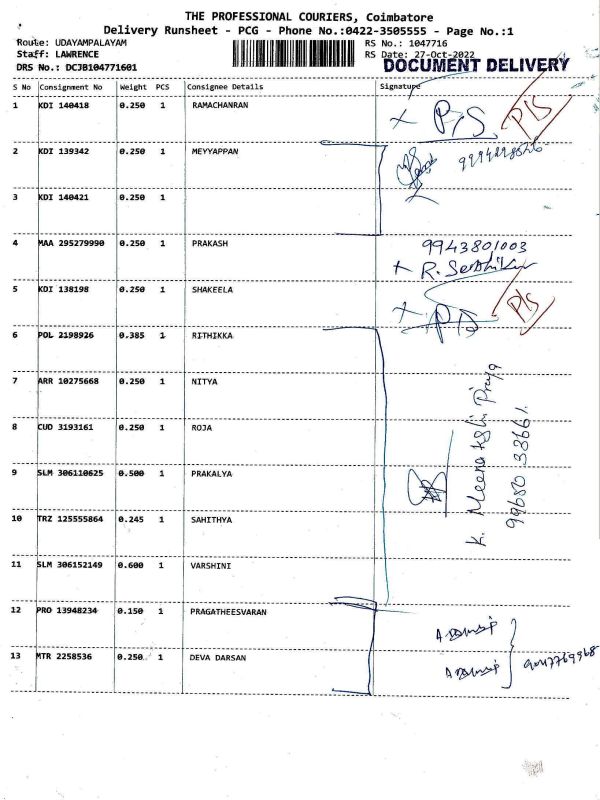 THE PROFESSIONAL COURIERS, Coimbatore
Delivery Runsheet - PCG - Phone No.:0422-3505555 - Page No.:1
Route: UDAYAMPALAYAM RS No.: 1047716
Staff: LAWRENCE RS Date: 27-Oct-2022
DRS No.: DCJB104771601 DOCUMENT DELIVERY
S No Consignment No Weight PCS Consignee Details Signature
1 KDI 140418 0.250 1 RAMACHANRAN P/S P/S
2 KDI 139342 0.250 1 MEYYAPPAN
3 KDI 140421 0.250 1
4 MAA 295279990 0.250 1 PRAKASH 9943801003
5 KDI 138198 0.250 1 SHAKEELA P/S
6 POL 2198926 0.385 1 RITHIKKA
7 ARR 10275668 0.250 1 NITYA
8 CUD 3193161 0.250 1 ROJA
9 SLM 306110625 0.500 1 PRAKALYA
10 TRZ 125555864 0.245 1 SAHITHYA
11 SLM 306152149 0.600 1 VARSHINI
K. Meenakshi Priya
99680 33661
12 PRO 13948234 0.150 1 PRAGATHEESVARAN
13 MTR 2258536 0.250 1 DEVA DARSAN